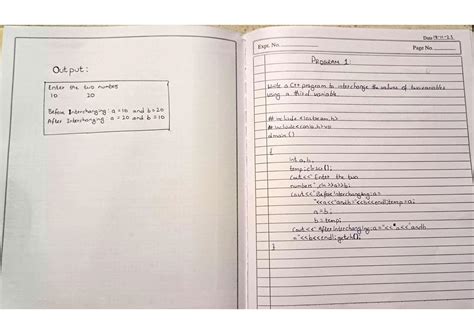 Output:
Enter the two numbers
10 20
Before Interchanging: a=10 and b=20
After Interchanging a=20 and b=10
Date
Expt. No.
Page No.
PROGRAM 1:
Write a C++ program to interchange the values of two variable
using a third variable.
# include <iostream.h>
# include <conio.h>
main()
{
int a, b,
cout<< "Enter the two
numbers"; cin>>a>>b;
cout<<"Before Interchanging: a=
"<<a<<"and b="<<b<<endl; temp=a;
a=b;
b=temp;
cout<<"After Interchanging: a="<<a<<"and b
="<<b<<endl; getch();
}